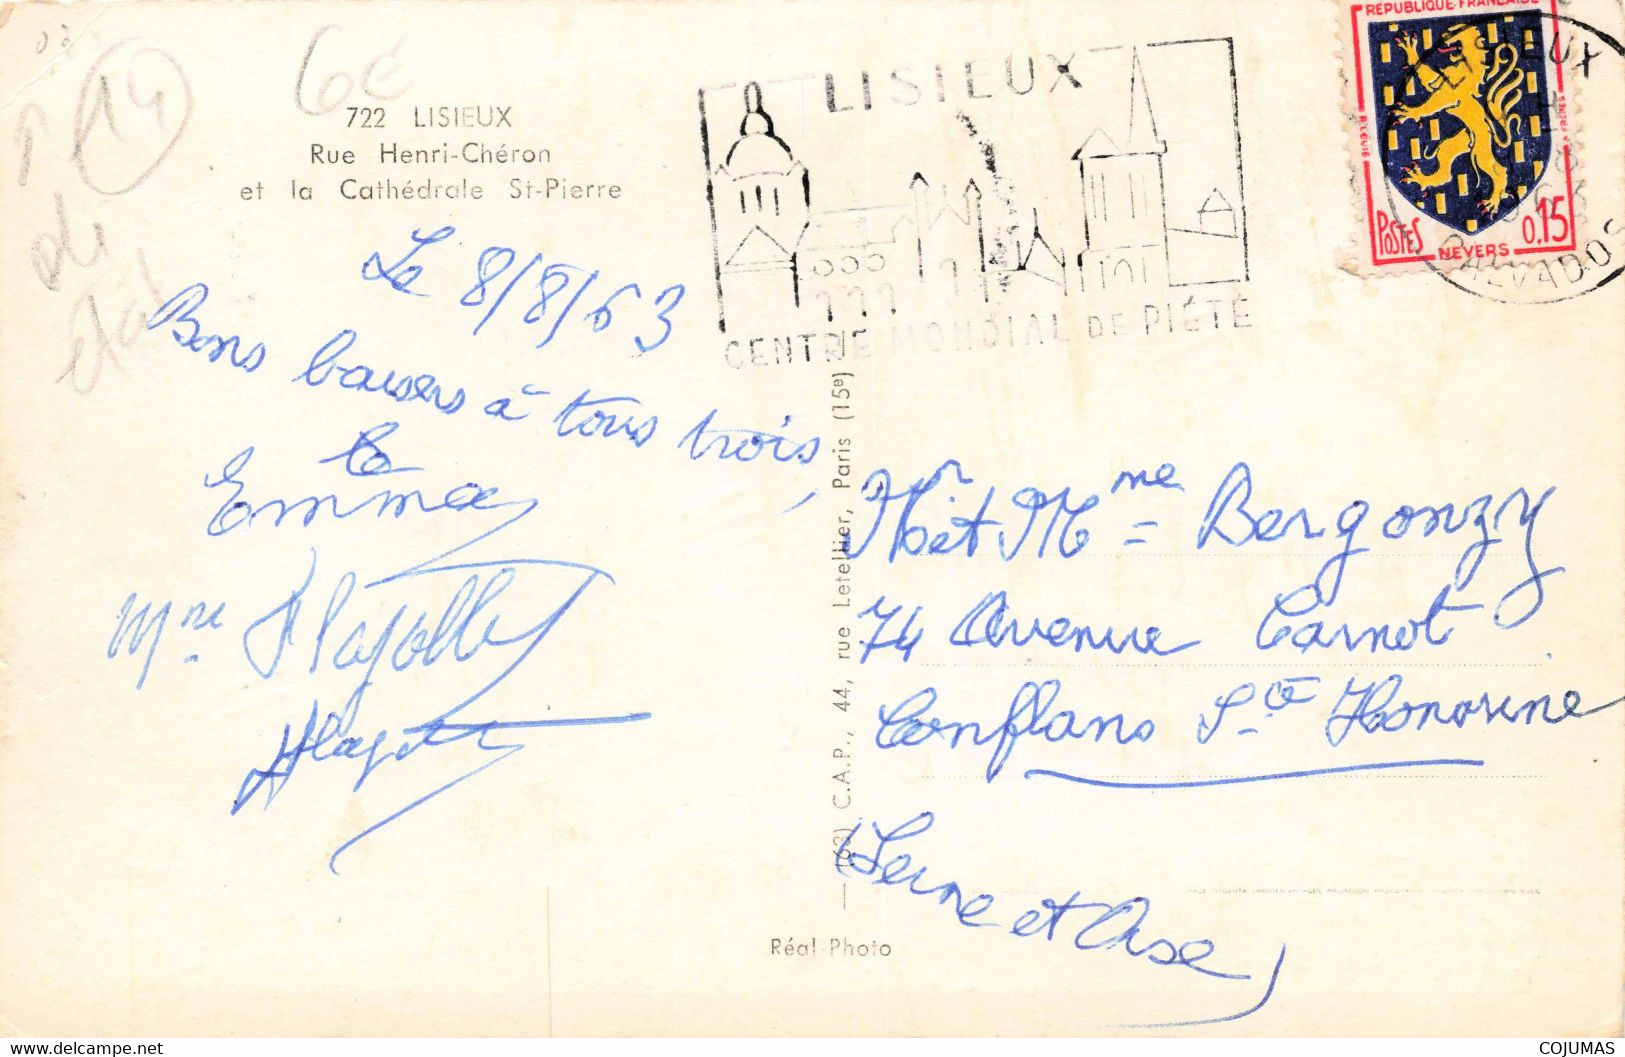 6€
14
722 LISIEUX
Rue Henri-Chéron
et la Cathédrale St-Pierre
LISIEUX
CENTRE MONDIAL DE PIÉTÉ
RÉPUBLIQUE FRANÇAISE
POSTES 0,15
NEVERS
LISIEUX
CALVADOS
Le 8/8/63
Bons baisers à tous trois,
Emma
Mme
Mr et Mme Bergonzy
74 Avenue Carnot
Conflans Ste Honorine
(Seine et Oise)
(63) C.A.P., 44, rue Letellier, Paris (15e)
Réal-Photo
COJUMAS